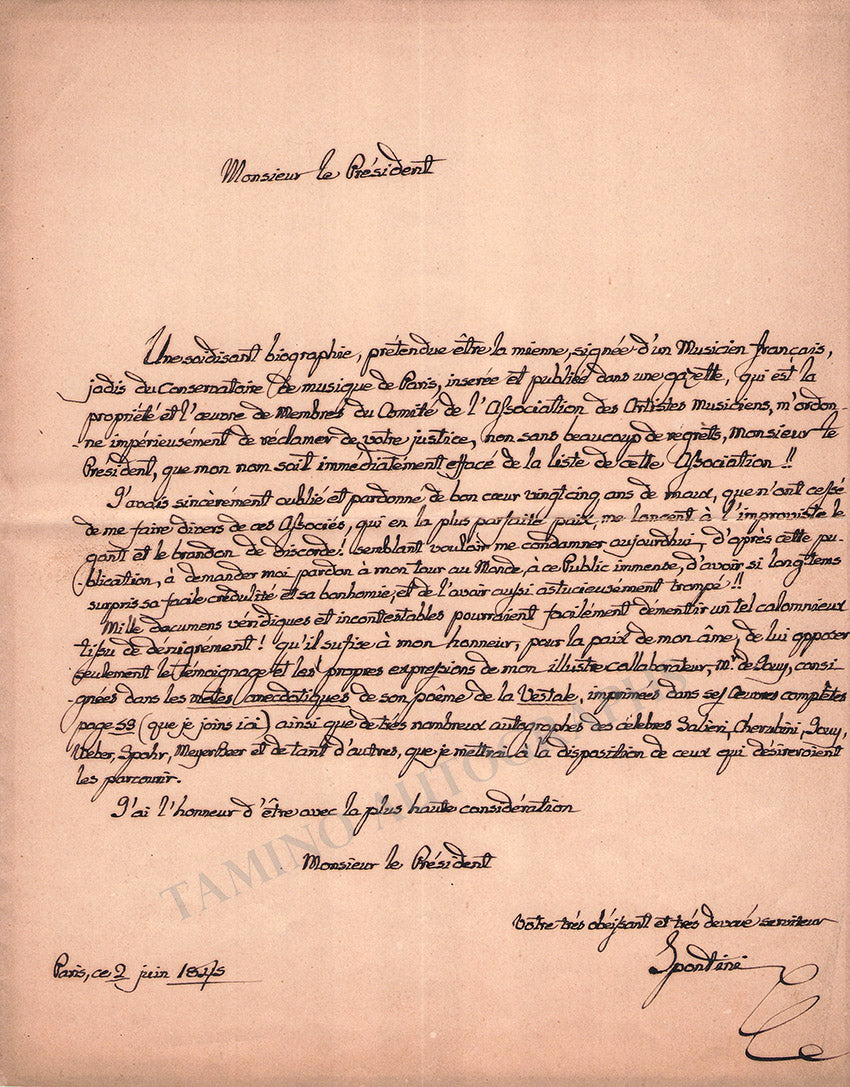 Monsieur le Président
Une soidisant biographie, prétendue être la mienne, signée d'un Musicien français,
jadis du Conservatoire de musique de Paris, inserée et publiée dans une gazette, qui est la
propriété et l'œuvre de Membres du Comité de l'Association des Artistes Musiciens, m'ordon-
-ne impérieusement de réclamer de votre justice, non sans beaucoup de régrèts, Monsieur le
Président, que mon nom soit immédiatement effacé de la liste de cette Association !!
J'avais sincèrement oublié et pardonné de bon cœur vingt cinq ans de maux, que n'ont cessé
de me faire divers de ces Associés, qui en la plus parfaite paix, me lancent à l'improviste le
gant et le brandon de discorde! semblant vouloir me condamner aujourd'hui, d'après cette pu-
-blication, à demander moi pardon à mon tour au Monde, à ce Public immense, d'avoir si longtems
surpris sa facile crédulité et sa bonhomie, et de l'avoir aussi astucieusement trompé !!
Mille documens véridiques et incontestables pourraient facilement démentir un tel calomnieux
tissu de dénigrement ! qu'il sufise à mon honneur, pour la paix de mon âme, de lui opposer
seulement le témoignage et les propres expressions de mon illustre collaborateur, Mr. de Jouy, consi-
-gnées dans les notes anecdotiques de son poême de la Vestale, imprimées dans ses Œuvres complètes
page 59 (que je joins ici) ainsi que de très nombreux autographes des célebres Salieri, Cherubini, Jouy,
Weber, Spohr, MeyerBeer et de tant d'autres, que je mettrai à la disposition de ceux qui désireroient
les parcourir.
J'ai l'honneur d'être avec la plus haute considération
Monsieur le Président
Votre très obéissant et très devoué serviteur
Spontini
Paris, ce 2 juin
TAMINO AUTOGRAPHS